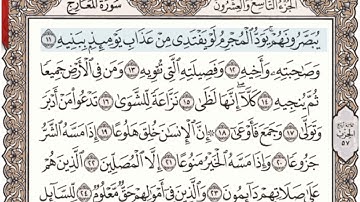 الجزء التاسع والعشرون سورة المعارج
يُبَصَّرُونَهُمْ يَوَدُّ الْمُجْرِمُ لَوْ يَفْتَدِى مِنْ عَذَابِ يَوْمِئِذٍ بِبَنِيهِ ١١
وَصَاحِبَتِهِ وَأَخِيهِ ١٢ وَفَصِيلَتِهِ الَّتِى تُـْٔوِيهِ ١٣ وَمَن فِى الْأَرْضِ جَمِيعًا
ثُمَّ يُنجِيهِ ١٤ كَلَّا إِنَّهَا لَظَىٰ ١٥ نَزَّاعَةً لِّلشَّوَىٰ ١٦ تَدْعُوا مَنْ أَدْبَرَ
وَتَوَلَّىٰ ١٧ وَجَمَعَ فَأَوْعَىٰ ١٨ إِنَّ الْإِنسَٰنَ خُلِقَ هَلُوعًا ١٩ إِذَا مَسَّهُ الشَّرُّ
جَزُوعًا ٢٠ وَإِذَا مَسَّهُ الْخَيْرُ مَنُوعًا ٢١ إِلَّا الْمُصَلِّينَ ٢٢ الَّذِينَ هُمْ
عَلَىٰ صَلَاتِهِمْ دَائِمُونَ ٢٣ وَالَّذِينَ فِى أَمْوَٰلِهِمْ حَقٌّ مَّعْلُومٌ ٢٤ لِّلسَّائِلِ
الحزب
٥٧